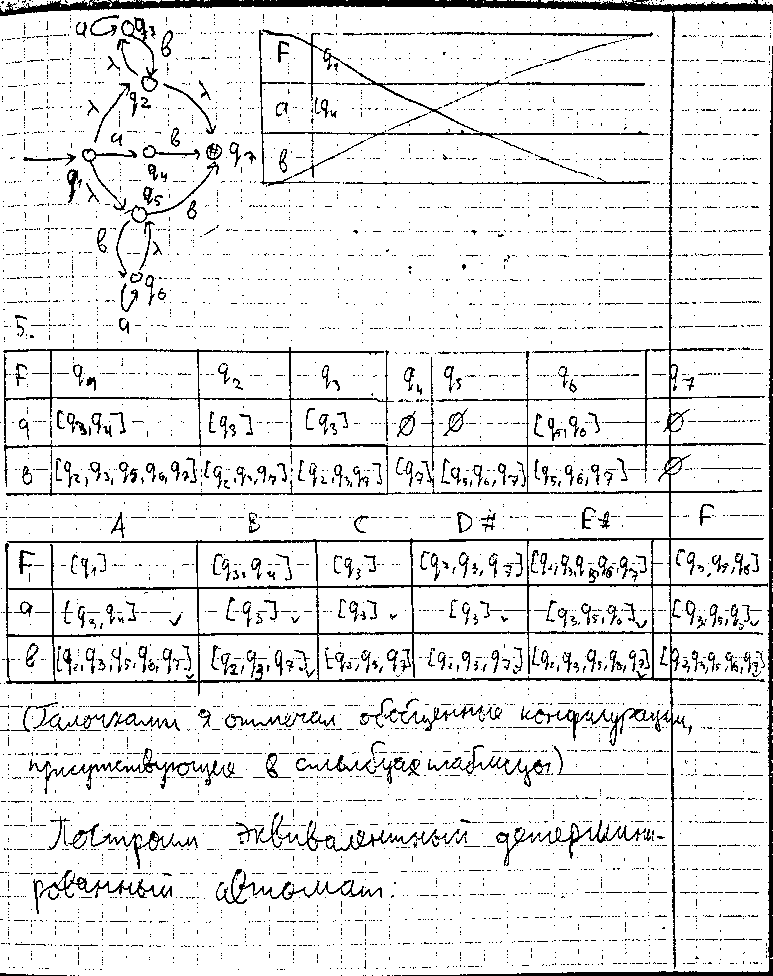 a q3 b
λ λ
q2
λ a b
q1 q4 q7
λ q5 b
b λ
q6
a
F q1
a [q4
b
5.
F q1 q2 q3 q4 q5 q6 q7
a [q3,q4] [q3] [q3] ∅ ∅ [q5,q6] ∅
b [q2,q3,q5,q6,q7] [q2,q3,q7] [q2,q3,q7] [q7] [q5,q6,q7] [q5,q6,q7] ∅
A B C D# E# F
F [q1] [q3,q4] [q3] [q2,q3,q7] [q2,q3,q5,q6,q7] [q3,q5,q6]
a [q3,q4] ✓ [q3] ✓ [q3] ✓ [q3] ✓ [q3,q5,q6] ✓ [q3,q5,q6] ✓
b [q2,q3,q5,q6,q7] ✓ [q2,q3,q7] ✓ [q2,q3,q7] ✓ [q2,q3,q7] ✓ [q2,q3,q5,q6,q7] ✓ [q2,q3,q5,q6,q7] ✓
(Галочками я отмечал обобщенные конфигурации,
присутствующее в столбцах таблицы)
Построим эквивалентный детермини-
рованный автомат: